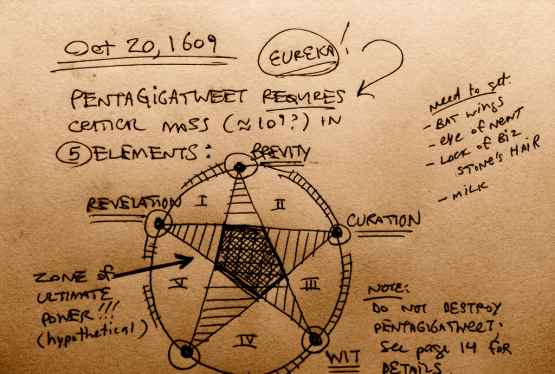 Oct 20, 1609
EUREKA!
PENTAGIGATWEET REQUIRES
CRITICAL MASS (≈109?) IN
5 ELEMENTS:
BREVITY
REVELATION
CURATION
WIT
I
II
III
IV
V
ZONE of
ULTIMATE
POWER!!!
(hypothetical)
need to get:
- BAT wings
- eye of NEWT
- Lock of BIZ
STONE'S HAIR
- MILK
NOTE:
DO NOT DESTROY
PENTAGIGATWEET!
See page 14 for
DETAILS